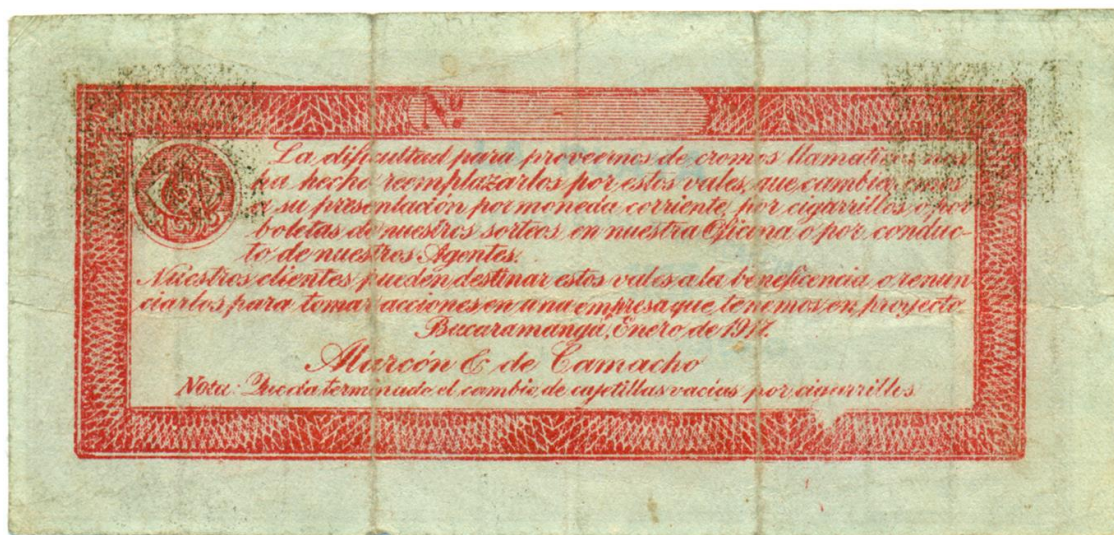 Nº
La dificultad para proveernos de cromos llamativos nos
ha hecho reemplazarlos por estos vales, que cambiaremos
a su presentación por moneda corriente, por cigarrillos o por
boletas de nuestros sorteos en nuestra Oficina o por conduc-
to de nuestros Agentes.
Nuestros clientes pueden destinar estos vales a la beneficencia, o renun
ciarlos para tomar acciones en una empresa que tenemos en proyecto
Bucaramanga, Enero de 1917.
Alarcón & de Camacho
Nota: Queda terminado el cambio de cajetillas vacias por cigarrillos